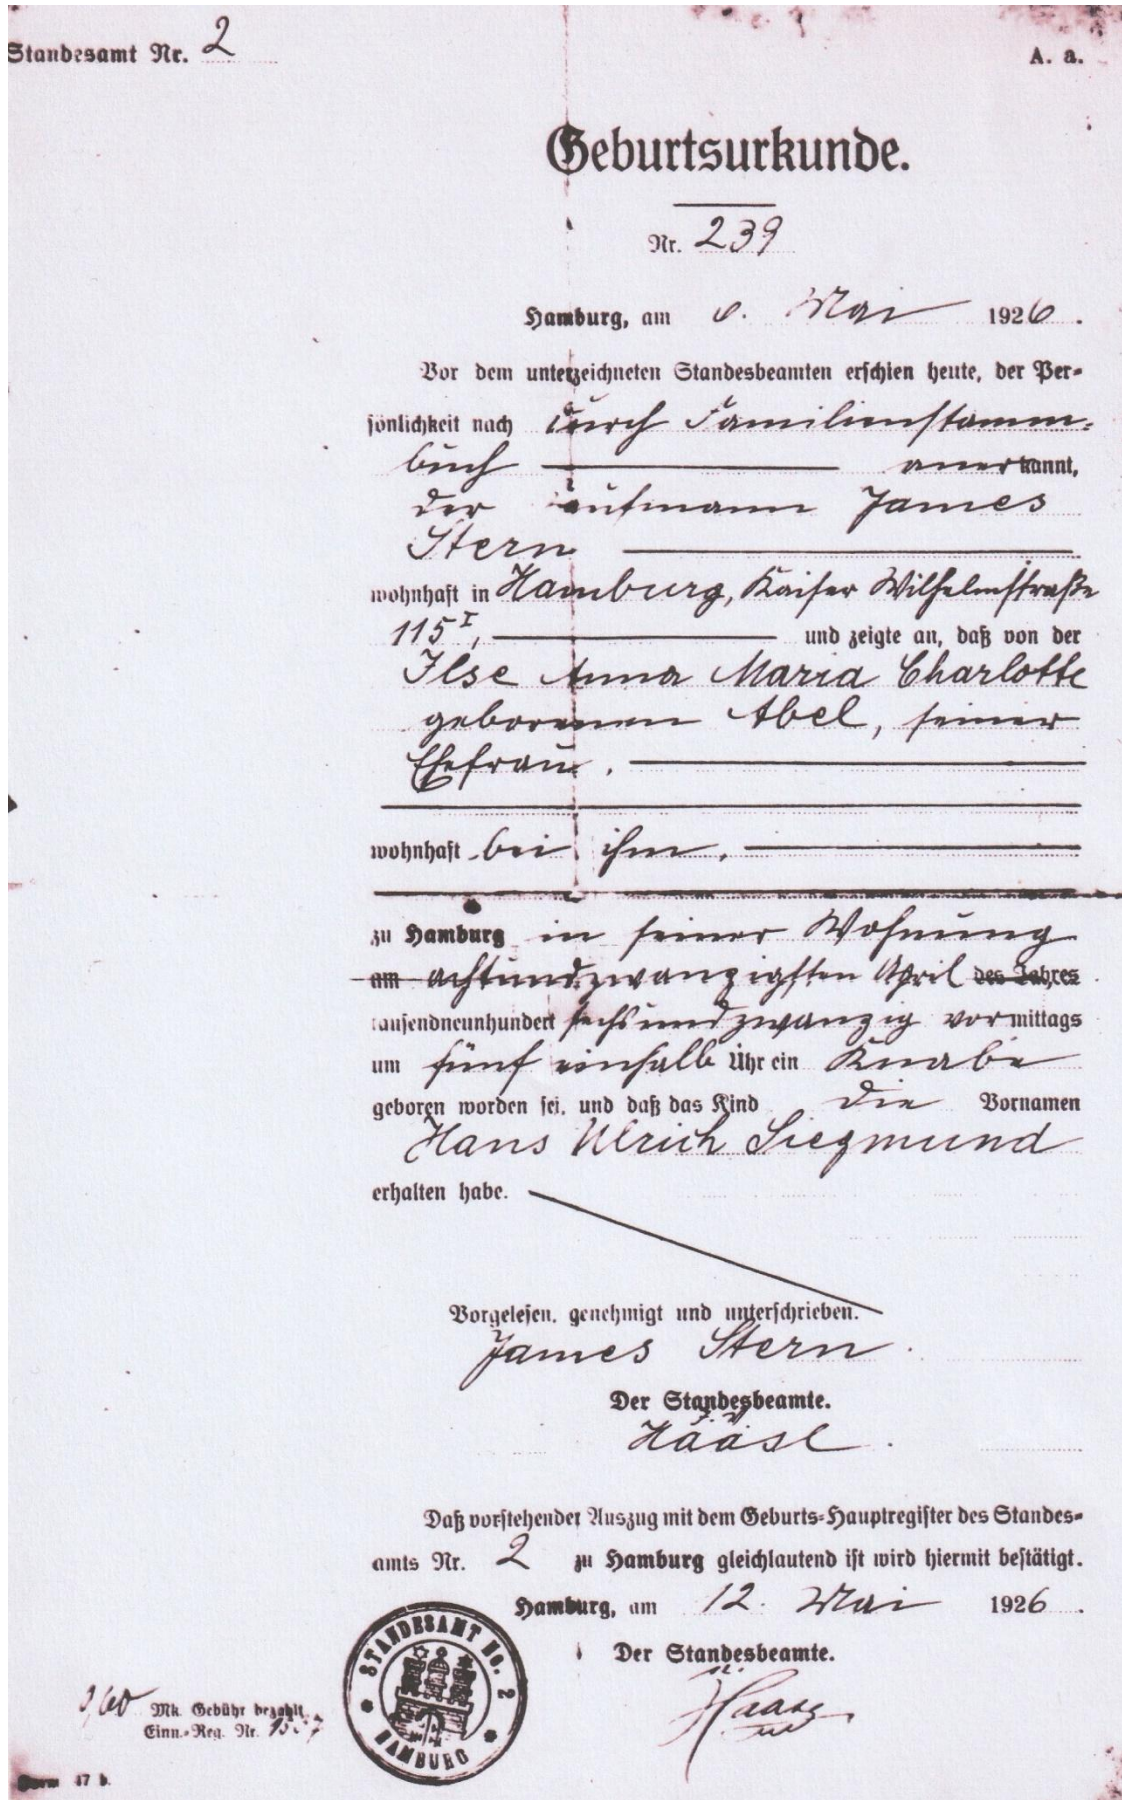 Standesamt Nr. 2
A. a.
Geburtsurkunde.
Nr. 239
Hamburg, am 6. Mai 1926.
Vor dem unterzeichneten Standesbeamten erschien heute, der Per-
sönlichkeit nach durch Familienstamm-
buch anerkannt,
der Kaufmann James
Stern
wohnhaft in Hamburg, Kaiser Wilhelmstraße
115 I, und zeigte an, daß von der
Ilse Anna Maria Charlotte
geborenen Abel, seiner
Ehefrau,
wohnhaft bei ihm,
zu Hamburg in seiner Wohnung
am achtundzwanzigsten April des Jahres
tausendneunhundert sechsundzwanzig vormittags
um fünf einhalb Uhr ein Knabe
geboren worden sei, und daß das Kind die Vornamen
Hans Ulrich Siegmund
erhalten habe.
Vorgelesen, genehmigt und unterschrieben.
James Stern.
Der Standesbeamte.
Daß vorstehender Auszug mit dem Geburts-Hauptregister des Standes-
amts Nr. 2 zu Hamburg gleichlautend ist wird hiermit bestätigt.
Hamburg, am 12. Mai 1926.
Der Standesbeamte.
STANDESAMT NO. 2
HAMBURG
Mk. Gebühr bezahlt
Einn.-Reg. Nr.
Form 47 b.